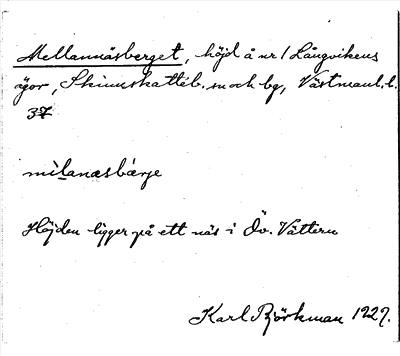 Mellannäsberget, höjd å nr 1 Långvikens
ägor, Skinnskatteb. sn och bg, Västmanl. l.
37
milanæsbærje
Höjden ligger på ett näs i Öv. Vättern
Karl Björkman 1927.